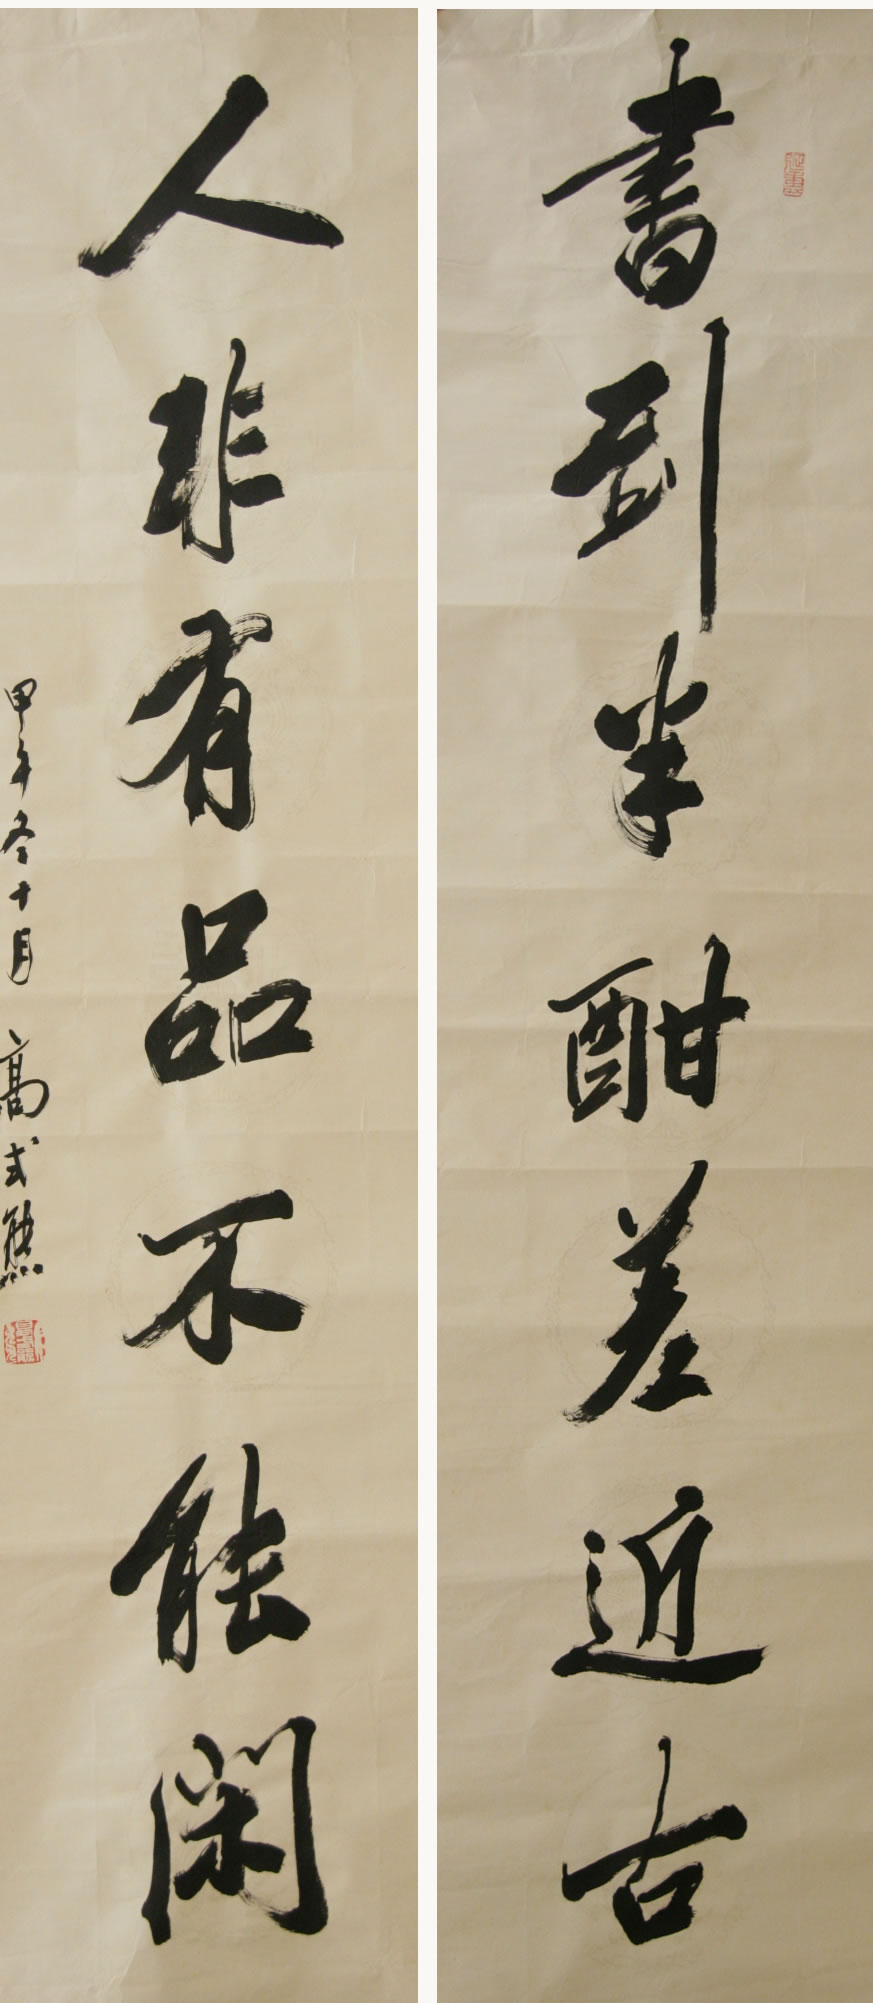 書到半酣差近古
人非有品不能閑
甲午冬十月 高式熊